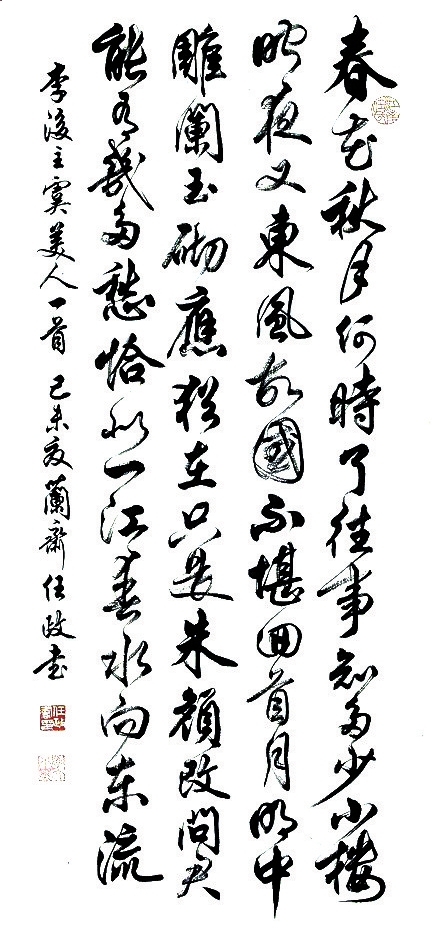 春花秋月何時了往事知多少小樓
昨夜又東風故國不堪回首月明中
雕闌玉砌應猶在只是朱顏改問君
能有幾多愁恰似一江春水向东流
李後主虞美人一首 己未夏蘭齋任政书
任政